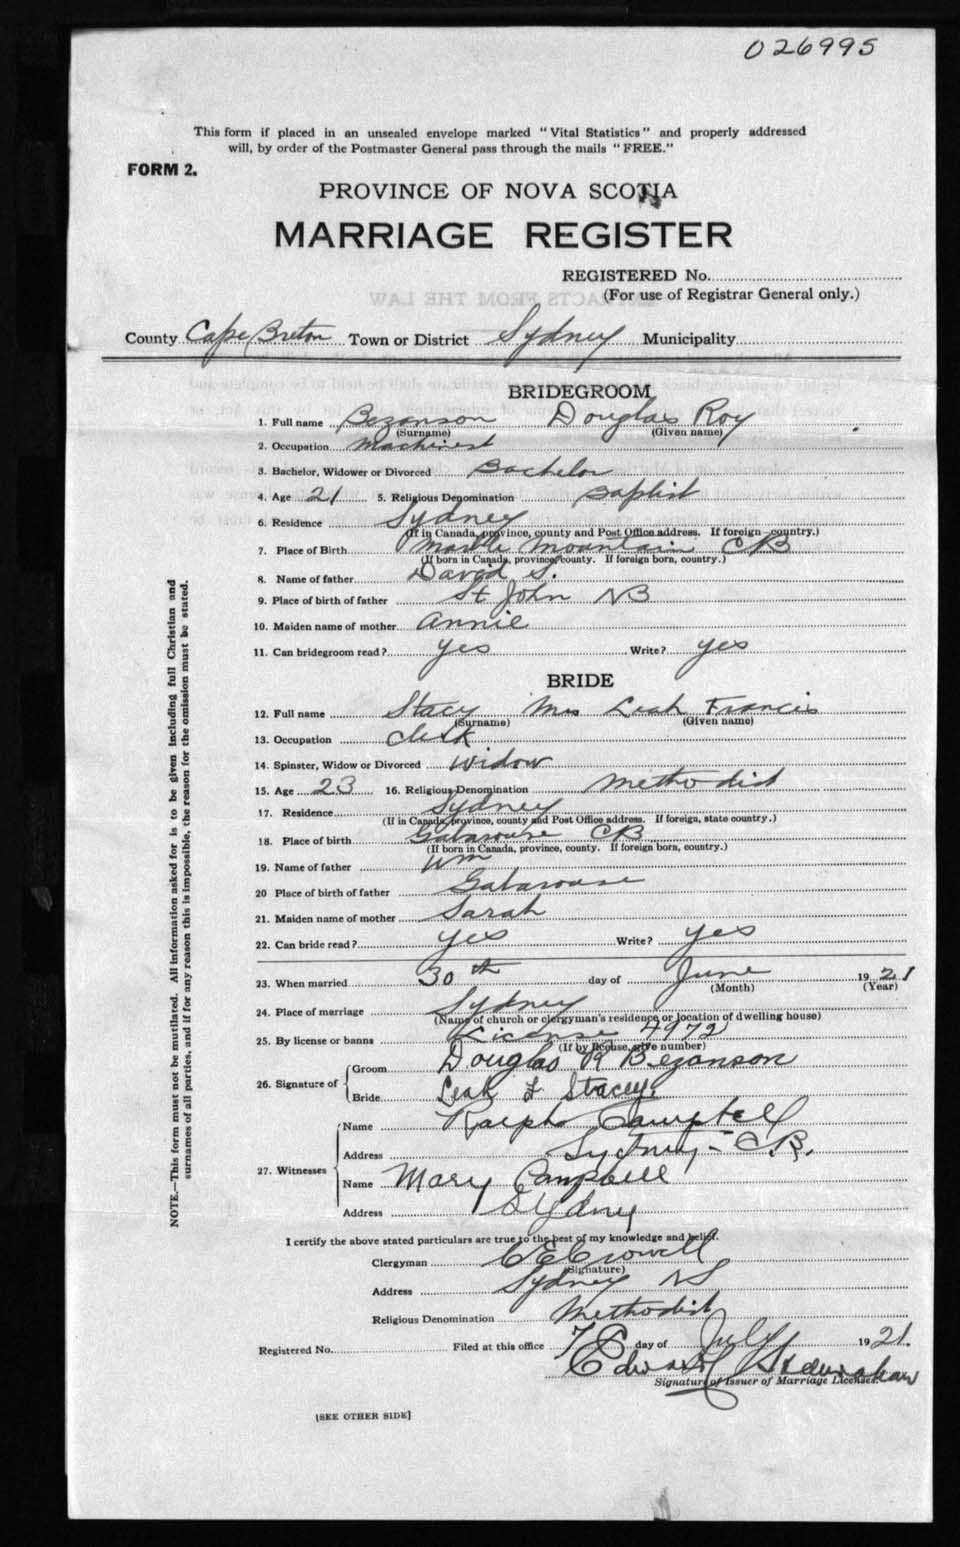 026995
This form if placed in an unsealed envelope marked "Vital Statistics" and properly addressed
will, by order of the Postmaster General pass through the mails "FREE."
FORM 2.
PROVINCE OF NOVA SCOTIA
MARRIAGE REGISTER
REGISTERED No.
(For use of Registrar General only.)
County Cape Breton Town or District Sydney Municipality
BRIDEGROOM
1. Full name Bezanson Douglas Roy
(Surname) (Given name)
2. Occupation Machinist
3. Bachelor, Widower or Divorced Bachelor
4. Age 21 5. Religious Denomination Baptist
6. Residence Sydney
(If in Canada, province, county and Post Office address. If foreign country.)
7. Place of Birth Marble Mountain CB
(If born in Canada, province, county. If foreign born, country.)
8. Name of father David S.
9. Place of birth of father St John NB
10. Maiden name of mother Annie
11. Can bridegroom read? yes Write? yes
BRIDE
12. Full name Stacy Mrs Leah Francis
(Surname) (Given name)
13. Occupation Clerk
14. Spinster, Widow or Divorced Widow
15. Age 23 16. Religious Denomination Methodist
17. Residence Sydney
(If in Canada, province, county and Post Office address. If foreign, state country.)
18. Place of birth Gabarouse CB
(If born in Canada, province, county. If foreign born, country.)
19. Name of father Wm
20 Place of birth of father Gabarouse
21. Maiden name of mother Sarah
22. Can bride read? yes Write? yes
23. When married 30th day of June 1921
(Month) (Year)
24. Place of marriage Sydney
(Name of church or clergyman's residence or location of dwelling house)
25. By license or banns License 4972
(If by license, give number)
26. Signature of Groom Douglas R Bezanson
Bride Leah F Stacey
27. Witnesses Name Ralph Campbell
Address Sydney - C.B.
Name Mary Campbell
Address Sydney
I certify the above stated particulars are true to the best of my knowledge and belief.
Clergyman C E Crowell
(Signature)
Address Sydney NS
Religious Denomination Methodist
Registered No. Filed at this office 7 day of July 1921.
Edward
Signature of Issuer of Marriage Licenses.
[SEE OTHER SIDE]
NOTE.—This form must not be mutilated. All information asked for is to be given including full Christian and
surnames of all parties, and if for any reason this is impossible, the reason for the omission must be stated.